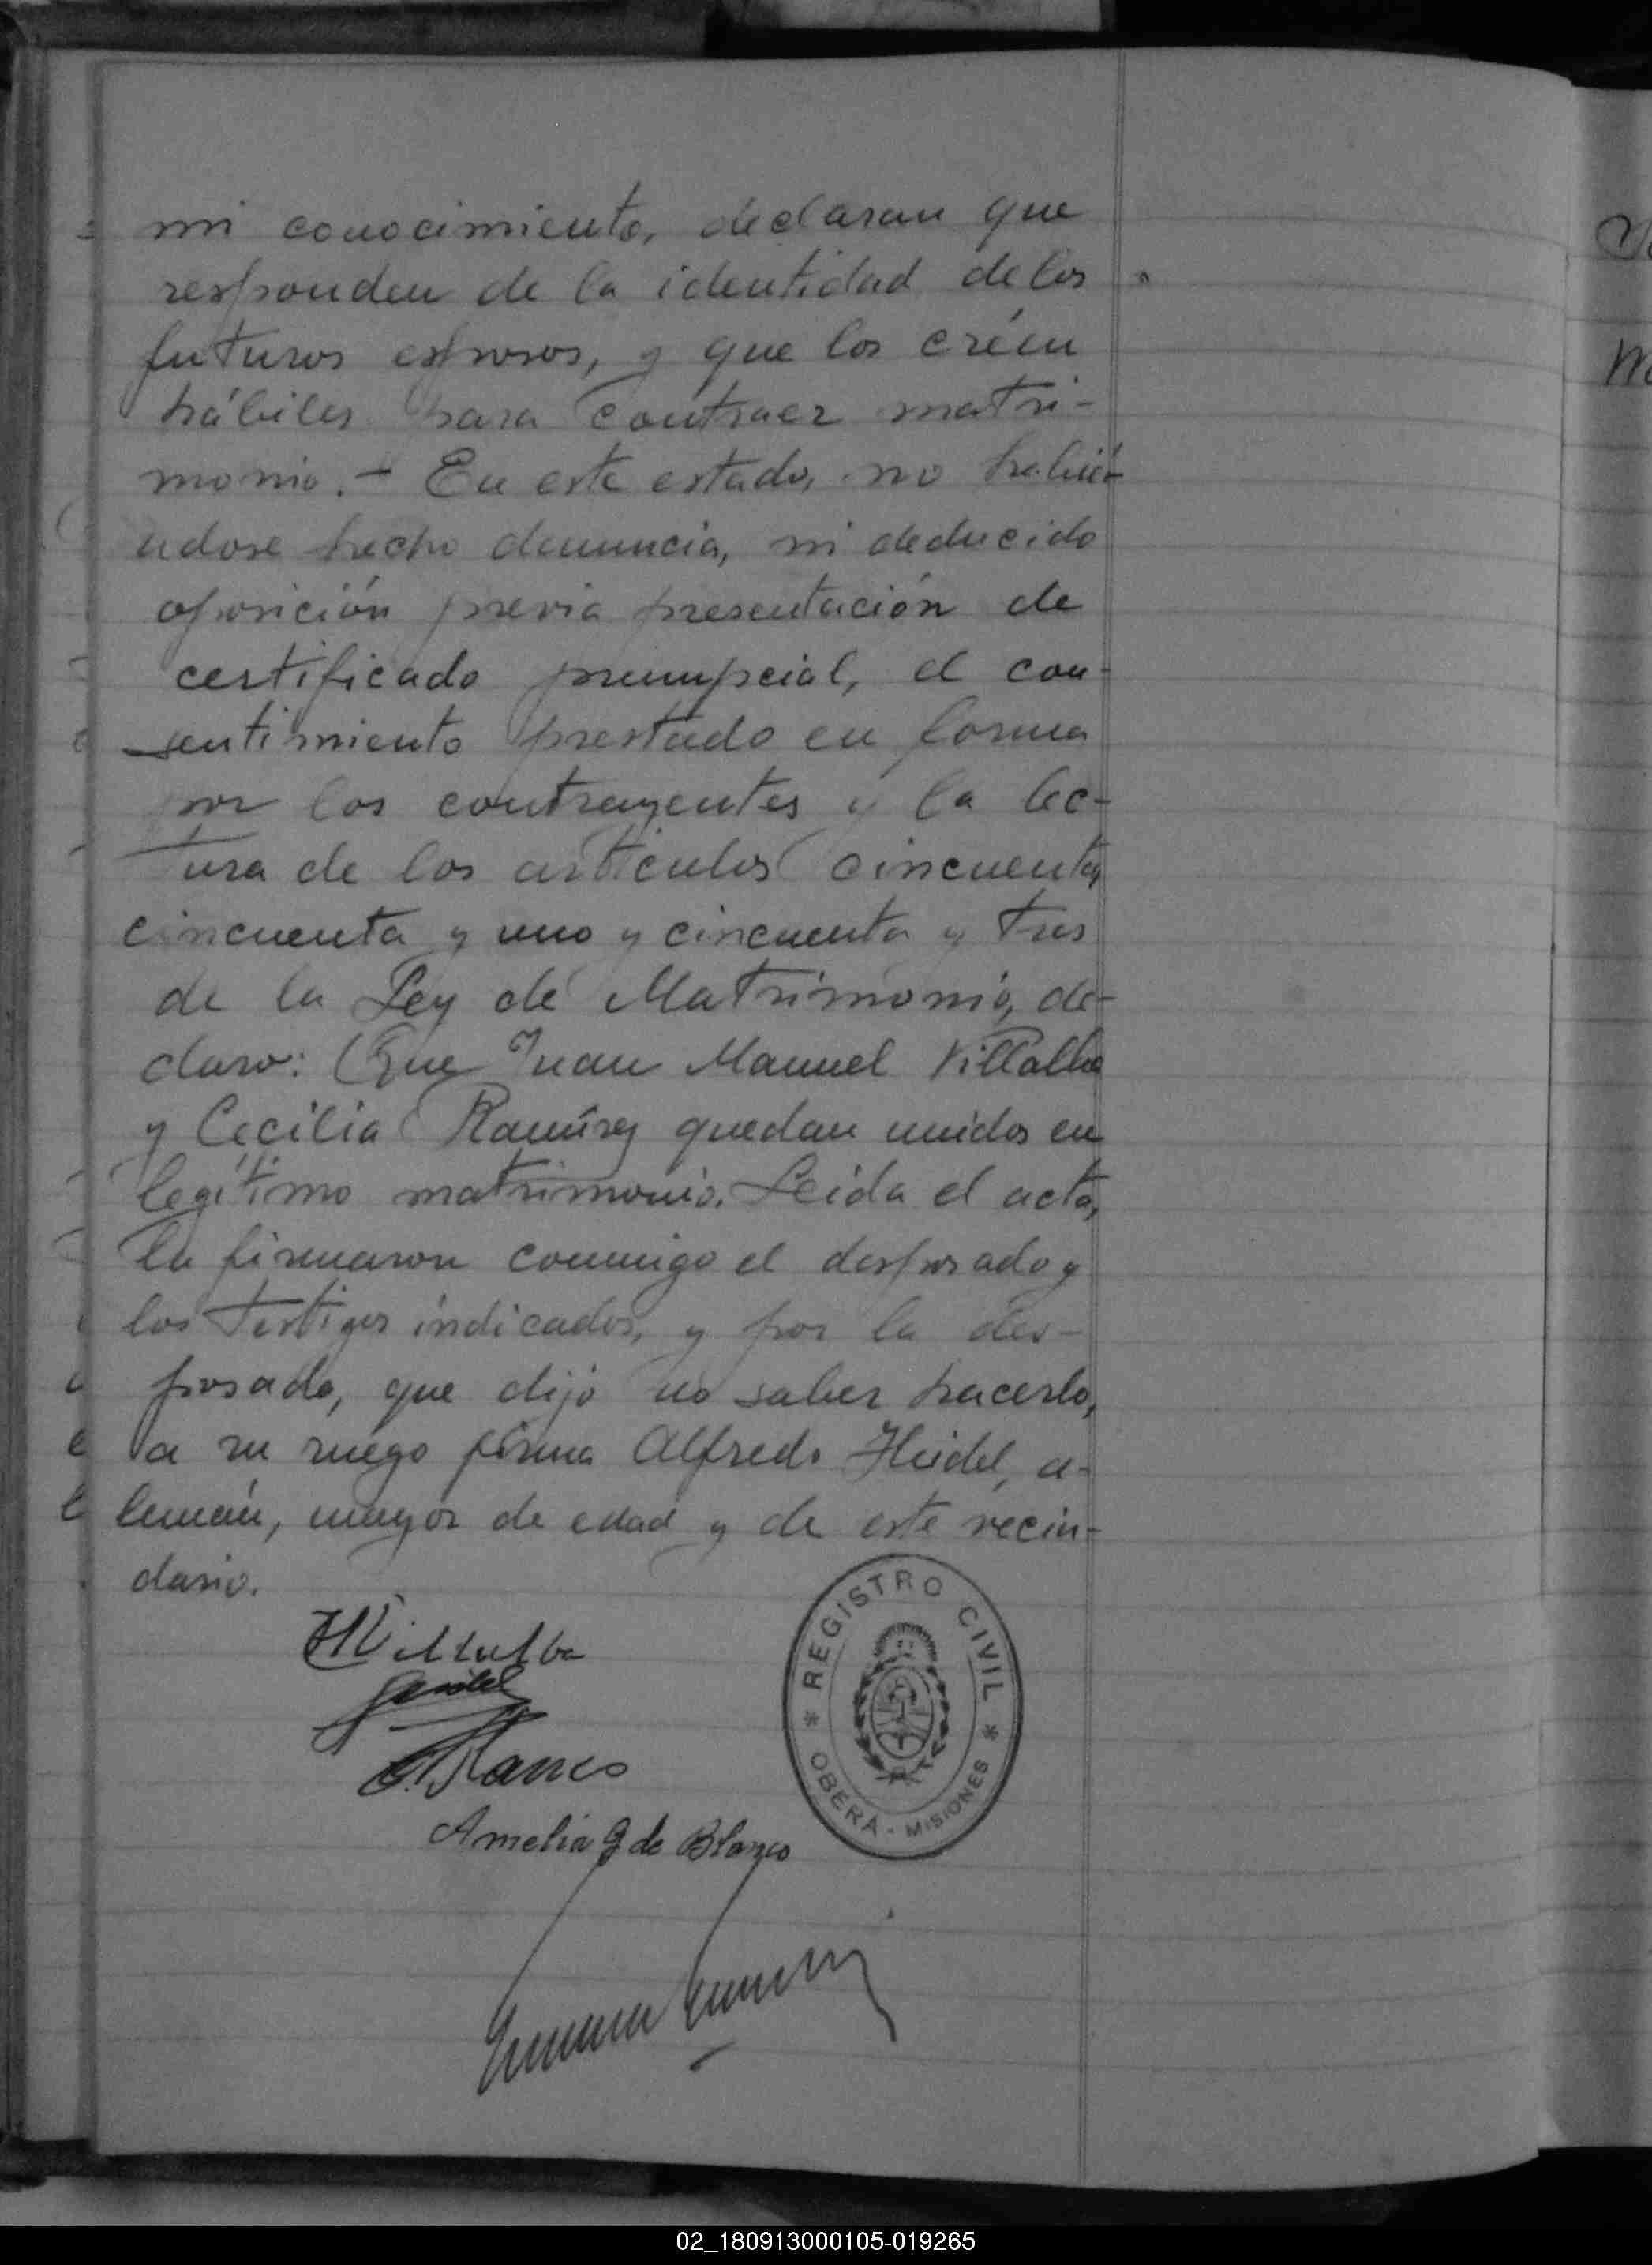 mi conocimiento, declaran que
responden de la identidad de los
futuros esposos, y que los créen
hábiles para contraer matri-
monio.- En este estado, no habién-
ndose hecho denuncia, ni deducido
oposición previa presentación de
certificado prenupcial, el con-
sentimiento prestado en forma
por los contrayentes y la lec-
tura de los artículos cincuenta,
cincuenta y uno y cincuenta y tres
de la Ley de Matrimonio, de-
claro: Que Juan Manuel Villalba
y Cecilia Ramírez quedan unidos en
legítimo matrimonio. Leida el acta,
la firmaron conmigo el desposado y
los testigos indicados, y por la des-
posada, que dijo no saber hacerlo,
a su ruego firma Alfredo Heidel, a-
lemán, mayor de edad y de este vecin-
dario.
JMVillalba
Blanco
Amelia G de Blanco
REGISTRO CIVIL
OBERÁ - MISIONES
02_180913000105-019265